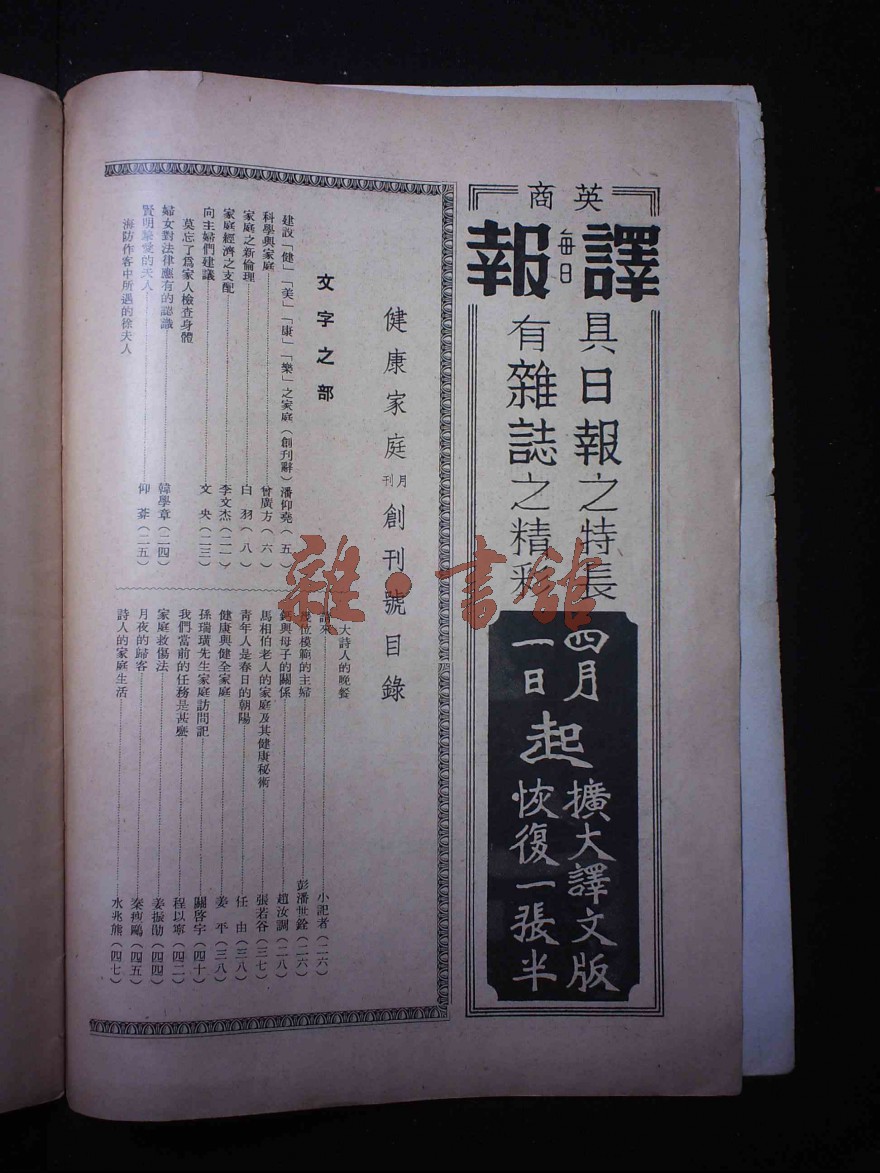 英商
每日譯報
具日報之特長
有雜誌之精彩
四月一日起
擴大譯文版
恢復一張半
健康家庭月刊創刊號目錄
文字之部
建設「健」「美」「康」「樂」之家庭(創刊辭)潘仰堯(五)
科學與家庭 曾廣方(六)
家庭之新倫理 白羽(八)
家庭經濟之支配 李文杰(二一)
向主婦們建議 文央(二三)
莫忘了爲家人檢查身體
婦女對法律應有的認識 韓學章(二四)
賢明慈愛的夫人 仰莽(二五)
海防作客中所遇的徐夫人
大詩人的晚餐
請來 小記者(二六)
幾位模範的主婦 彭潘世銓(二六)
鈣與母子的關係 趙汝調(二八)
馬相伯老人的家庭及其健康秘術 張若谷(三七)
青年人是春日的朝陽 任由(三八)
健康與健全家庭 姜平(三八)
孫瑞璜先生家庭訪問記 關啓宇(四十)
我們當前的任務是甚麼 程以寧(四二)
家庭救傷法 姜振勛(四四)
月夜的歸客 秦瘦鷗(四五)
詩人的家庭生活 水兆熊(四七)
雜·書館